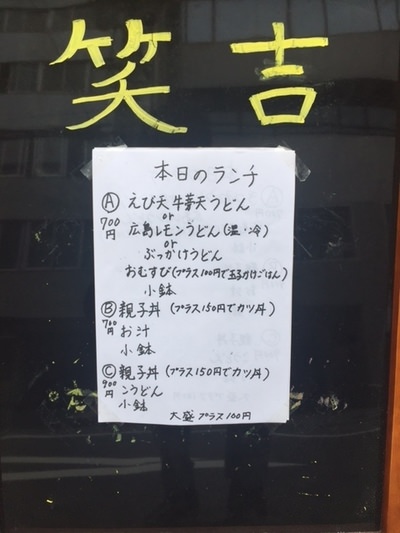 笑吉
本日のランチ
Ⓐ えび天 牛蒡天うどん
700円
or
広島レモンうどん(温・冷)
or
ぶっかけうどん
おむすび(プラス100円で玉子かけごはん)
小鉢
Ⓑ 親子丼 (プラス150円でカツ丼)
700円
お汁
小鉢
Ⓒ 親子丼 (プラス150円でカツ丼)
900円
こうどん
小鉢
大盛 プラス100円